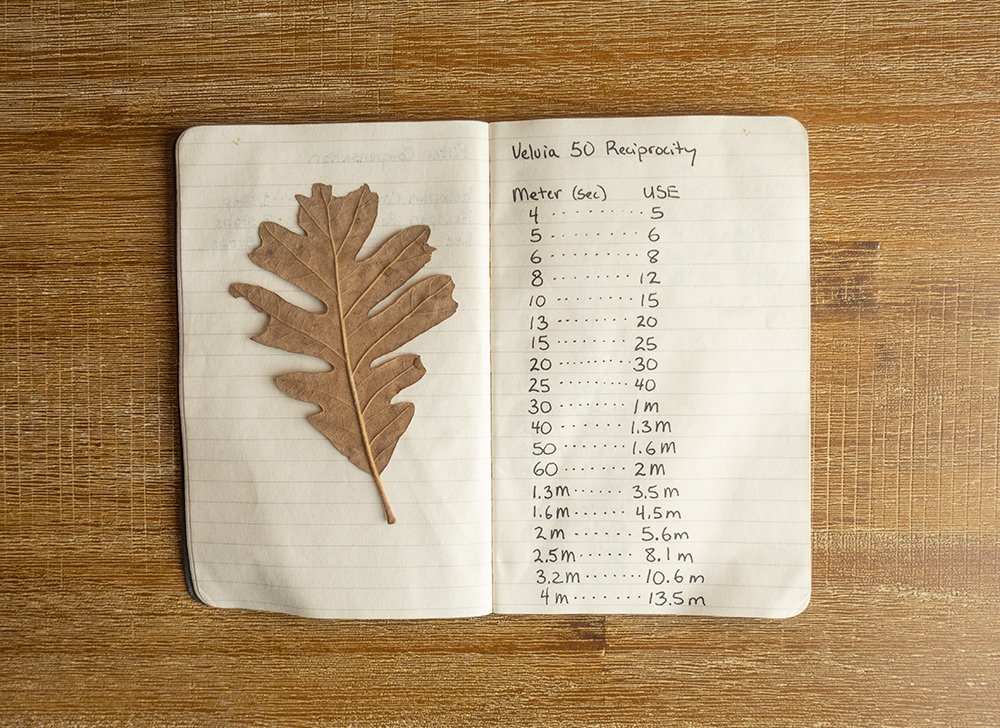 Velvia 50 Reciprocity
Meter (sec) USE
4 ·········· 5
5 ·········· 6
6 ·········· 8
8 ·········· 12
10 ········· 15
13 ········· 20
15 ········· 25
20 ········· 30
25 ········· 40
30 ········ 1m
40 ········ 1.3m
50 ········ 1.6m
60 ········ 2m
1.3m ······ 3.5m
1.6m ······ 4.5m
2m ······ 5.6m
2.5m ······ 8.1m
3.2m ······· 10.6m
4m ········ 13.5m